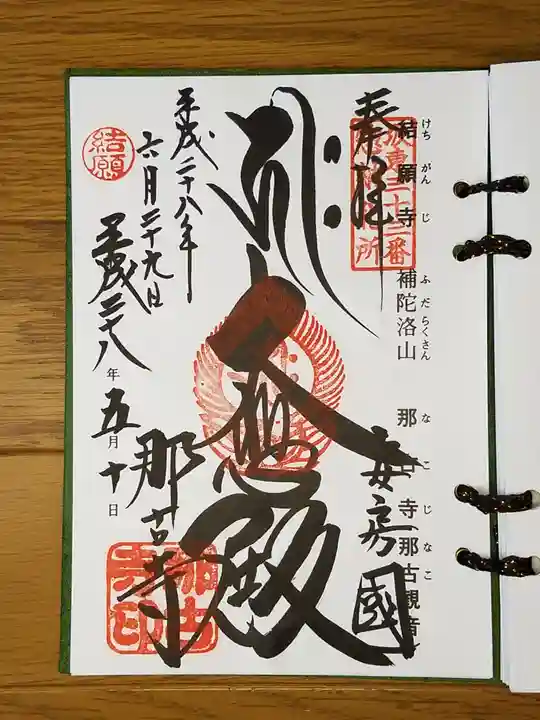 奉拝
坂東三十三番
結願寺 補陀洛山 那古寺 那古観音
けち がん じ ふ だ らくさん な こ じ な こ
安房國
大悲殿
那古寺
那古寺印
平成二十八年
六月二十九日
平成二十八年五月十日
結願